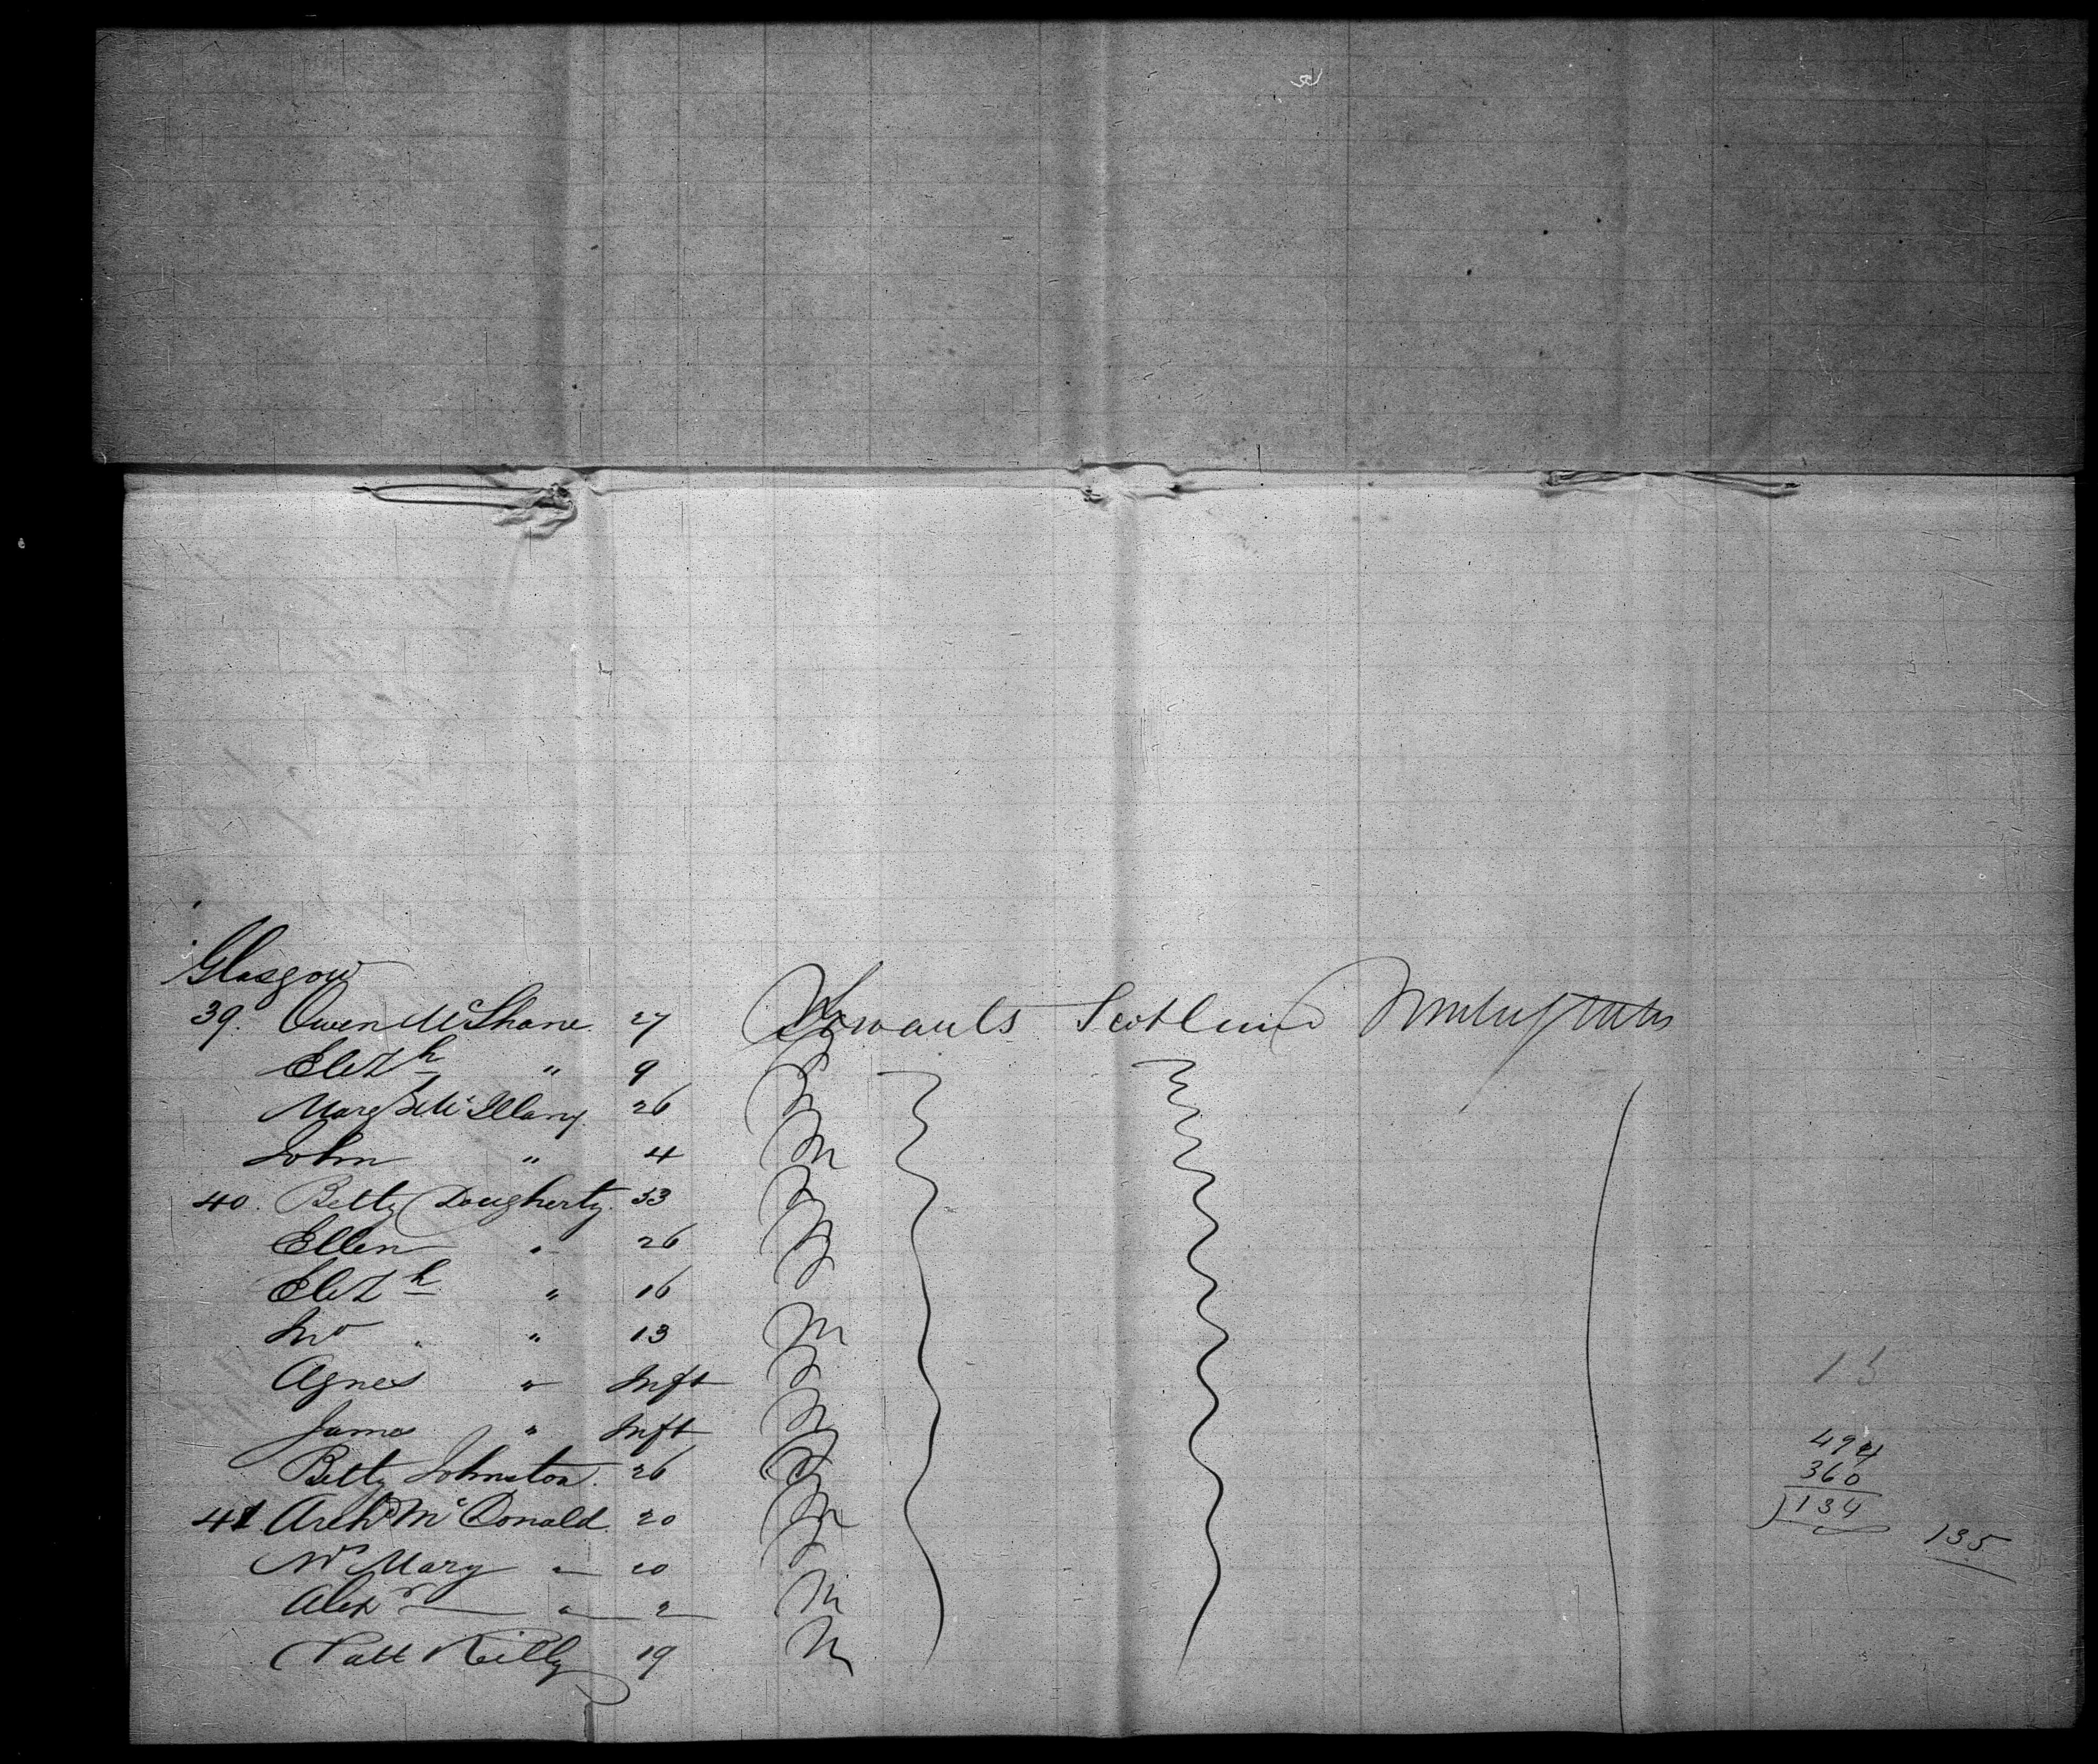 Glasgow
39. Owen McShane 27 Servants Scotland United States
Elizh " 9
Margt McIllany 26
John " 4 M
40. Betty Dougherty 33
Ellen " 26
Elizh " 16
Jno " 13 M
Agnes " Inft
James " Inft M
Betty Johnston 26
41 Archd McDonald 20 M
Mrs Mary " 20
Alexr " 2 M
Patt Reilly 19 M
13
494
360
134
135